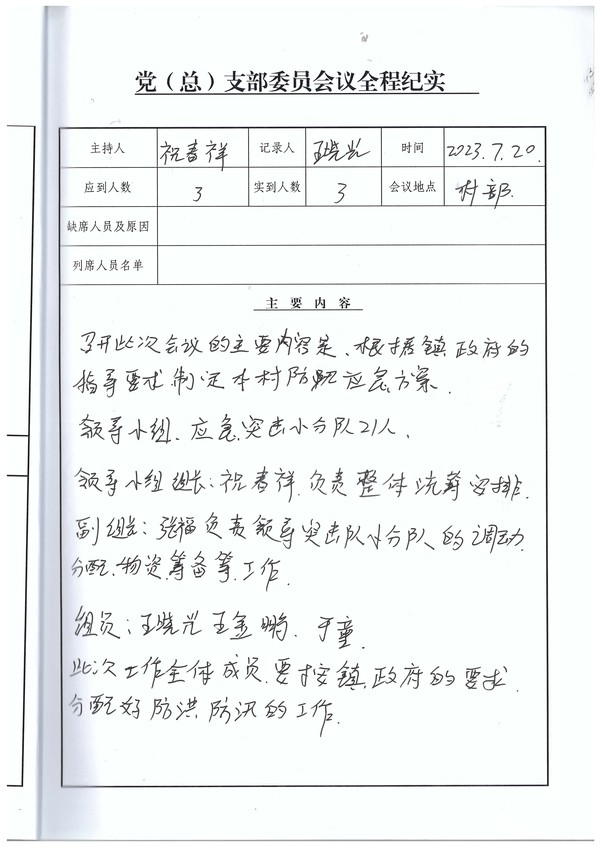 党（总）支部委员会议全程纪实
主持人 祝春祥 记录人 王晓光 时间 2023.7.20.
应到人数 3 实到人数 3 会议地点 村部.
缺席人员及原因
列席人员名单
主要内容
召开此次会议的主要内容是、根据镇政府的
指导要求,制定本村防汛应急方案.
领导小组、应急突击小分队21人.
领导小组组长:祝春祥.负责整体统筹安排.
副组长:张福负责领导突击队小分队的调动
分配、物资筹备等工作.
组员:王晓光 王金鹏、于童.
此次工作全体成员.要按镇政府的要求.
分配好防洪防汛的工作.